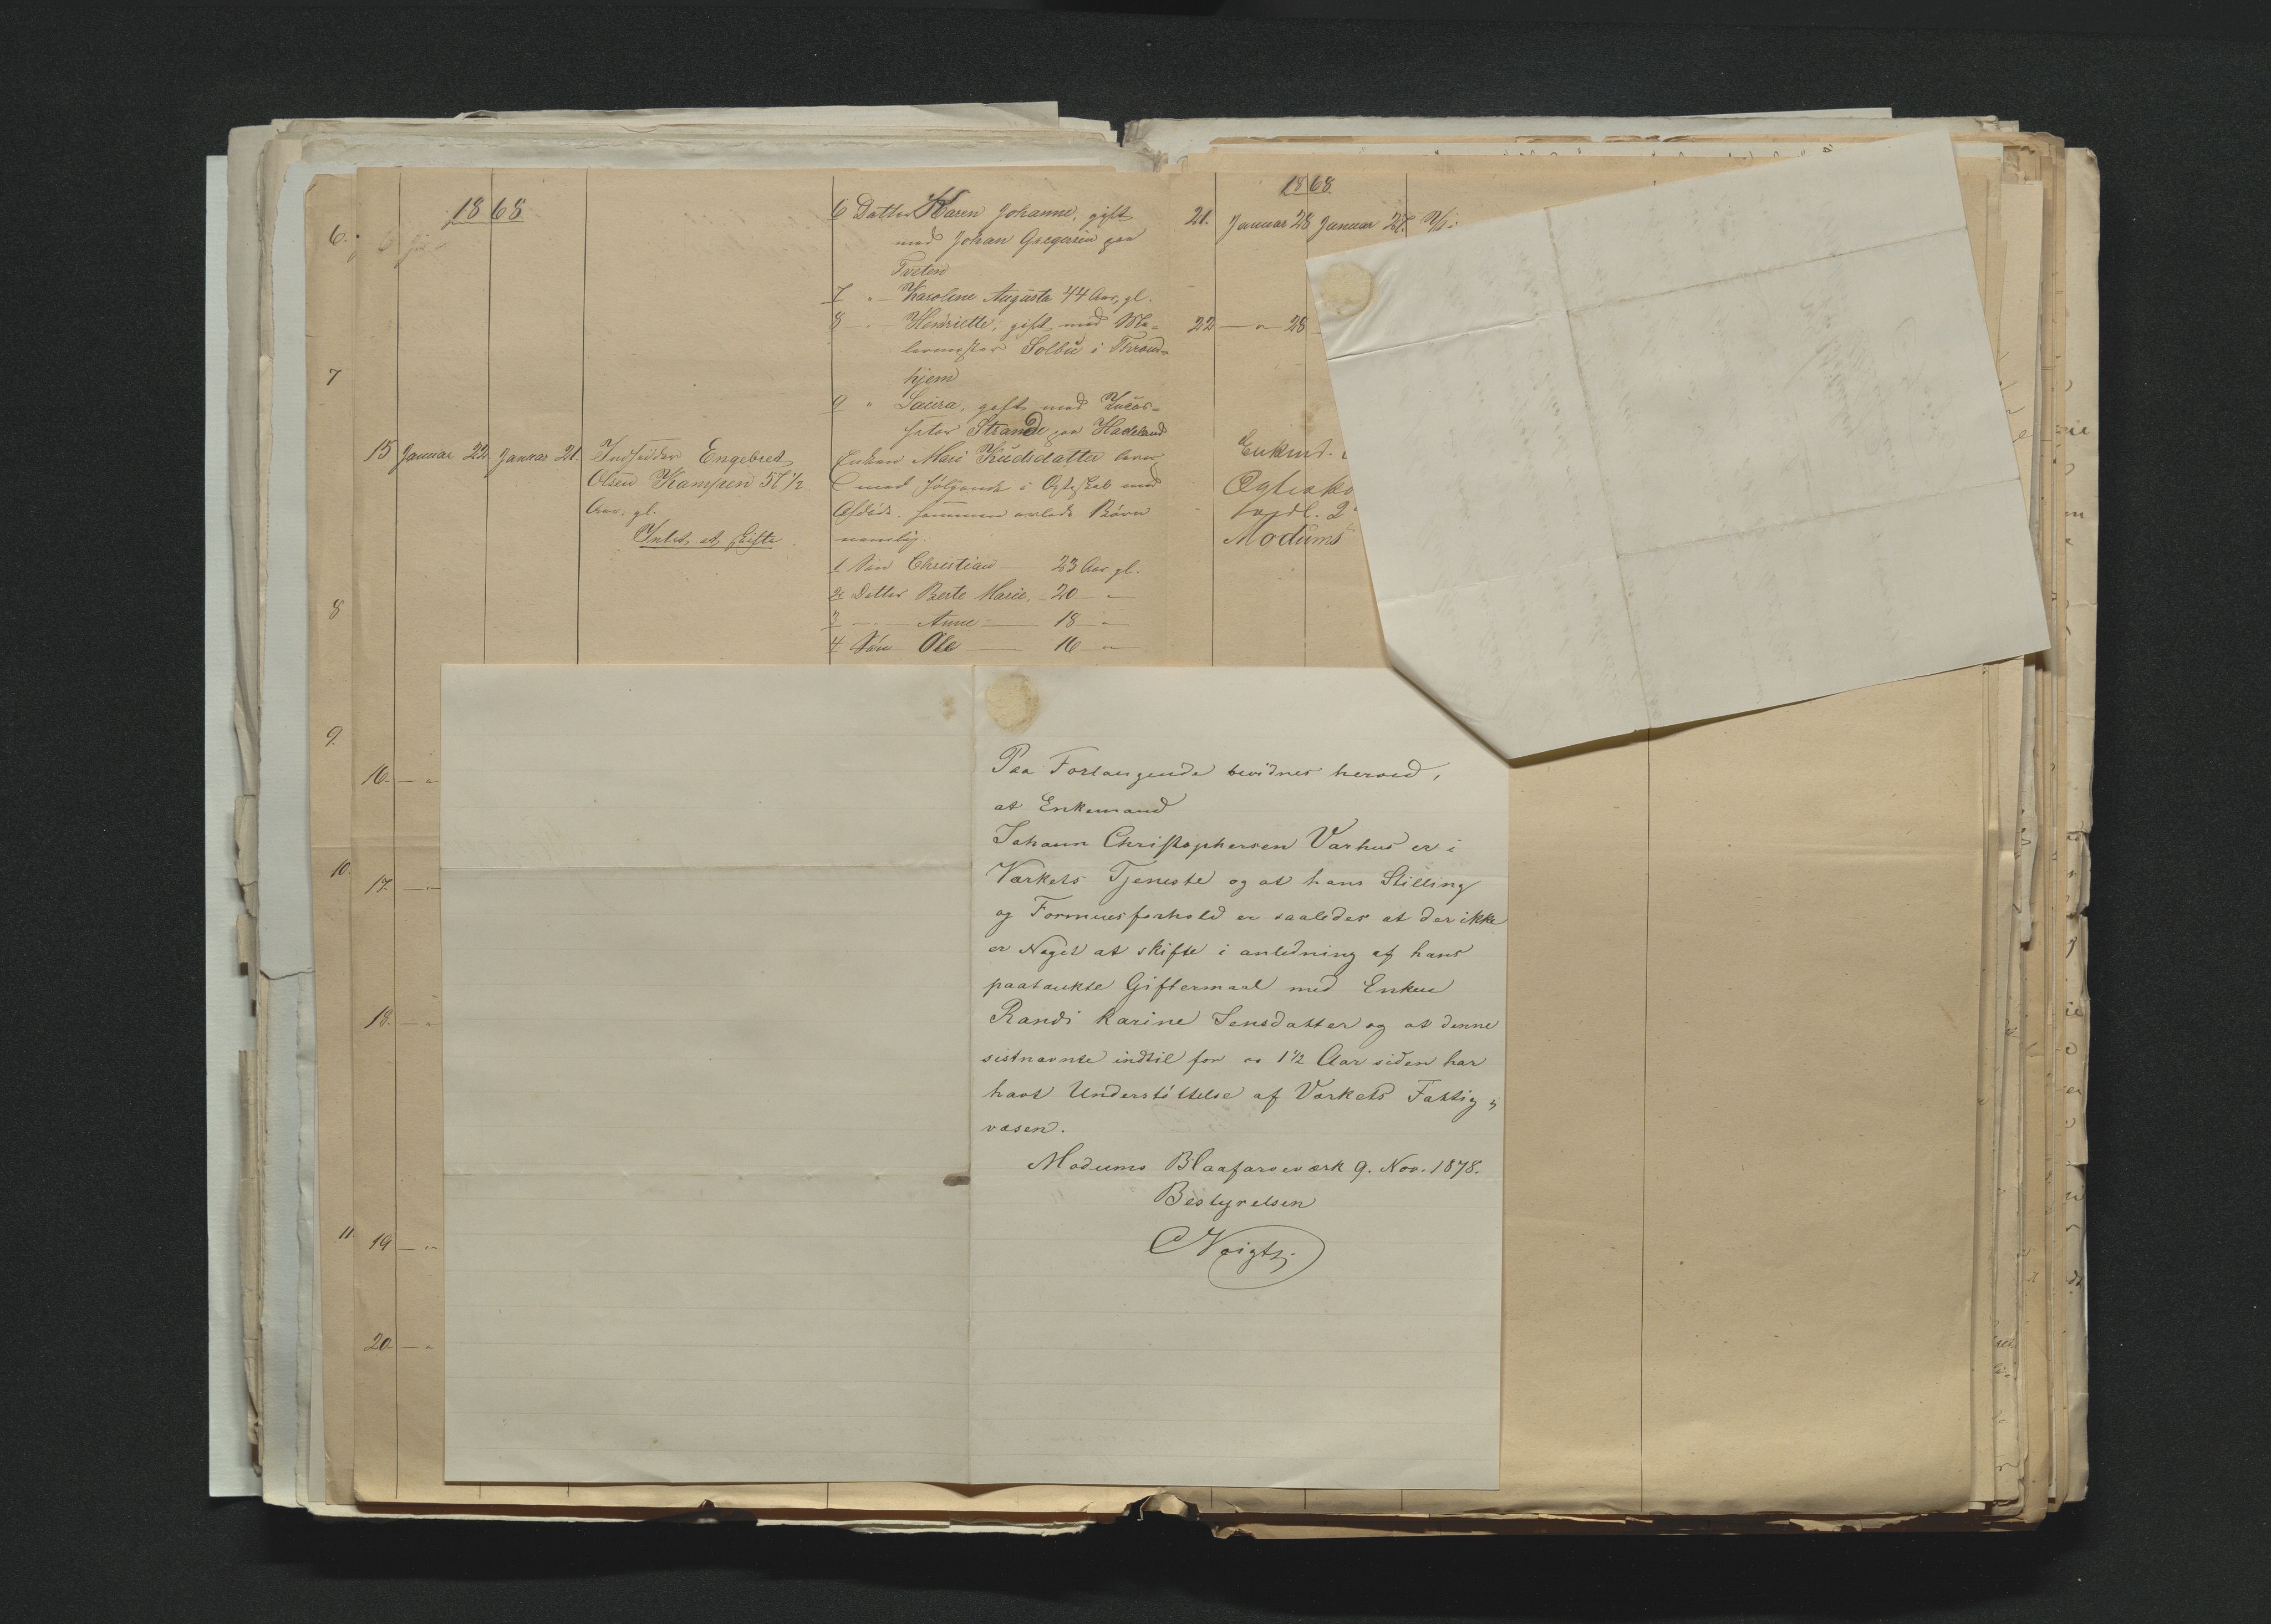 1868
6 Datter Karen Johanne, gift
med Johan Gregersen paa
Tveten
7 " Karoline Augusta 44 Aar, gl.
8 Henriette, gift med Ma-
lermester Solbü i Thrond-
hjem
9 " Laura, gift med
Strande paa Hadeland
6.
7
8
9.
10.
11
15 Januar 22 Januar 21. Indsidder Engebret
Olsen Kampen 57 1/2
Aar. gl.
Intet at skifte
Enken Mari Knudsdatter
med følgende i Ægteskab med
Afdøde sammen avlede Børn
nemlig.
1 Søn Christian — 23 Aar gl.
2 Datter Berte Marie, - 20 - "
3 — " — Anne — 18 - "
4 Søn Ole — 16 - "
16. — "
17. — "
18. — "
19 — "
20 — "
1868
21. Januar 28 Januar 27.
22 — " 28
Enkmd.
Modums
Paa Forlangende bevidnes herved,
at Enkemand
Johann Christophersen Varhus er i
Værkets Tjeneste og at hans Stilling
og Formuesforhold er saaledes at der ikke
er Noget at skifte i anledning af hans
paatænkte Giftermaal med Enken
Randi Karine Jensdatter og at denne
sistnævnte indtil for ca 1 1/2 Aar siden har
havt Understöttelse af Værkets Fattig-
væsen.
Modums Blaafarveværk 9. Nov. 1878.
Bestyrelsen
C Voigt